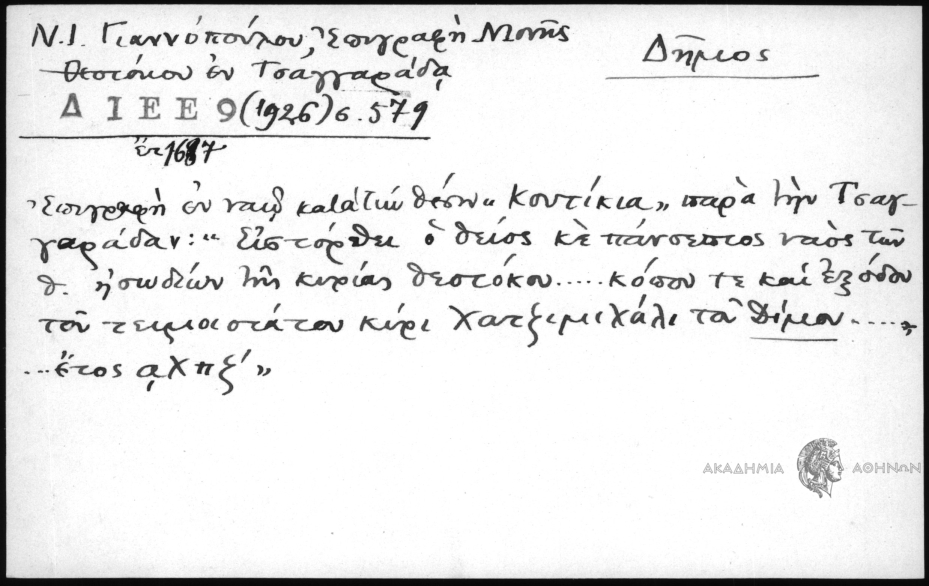 Ν.Ι. Γιαννοπούλου, Ἐπιγραφὴ Μονῆς
Θεοτόκου ἐν Τσαγγαράδᾳ
Δῆμιος
ΔΙΕΕ 9 (1926) σ. 579
ἔτ. 1687
Ἐπιγραφὴ ἐν ναῷ κατὰ τὴν θέσιν „Κουτίκια„ παρὰ τὴν Τσαγ-
γαράδαν: „Εἱστόρθει ὁ θεῖος κὲ πάνσεπτος ναὸς τῶν
θ. ἡσωδίων τῆς κυρίας θεοτόκου ..... κόπου τε καὶ ἐξόδου
τοῦ τειμιοτάτου κύρι Χατζιμιχάλι τοῦ Δίμιου .....„
... ἔτος ͵αχπζ´„
ΑΚΑΔΗΜΙΑ ΑΘΗΝΩΝ